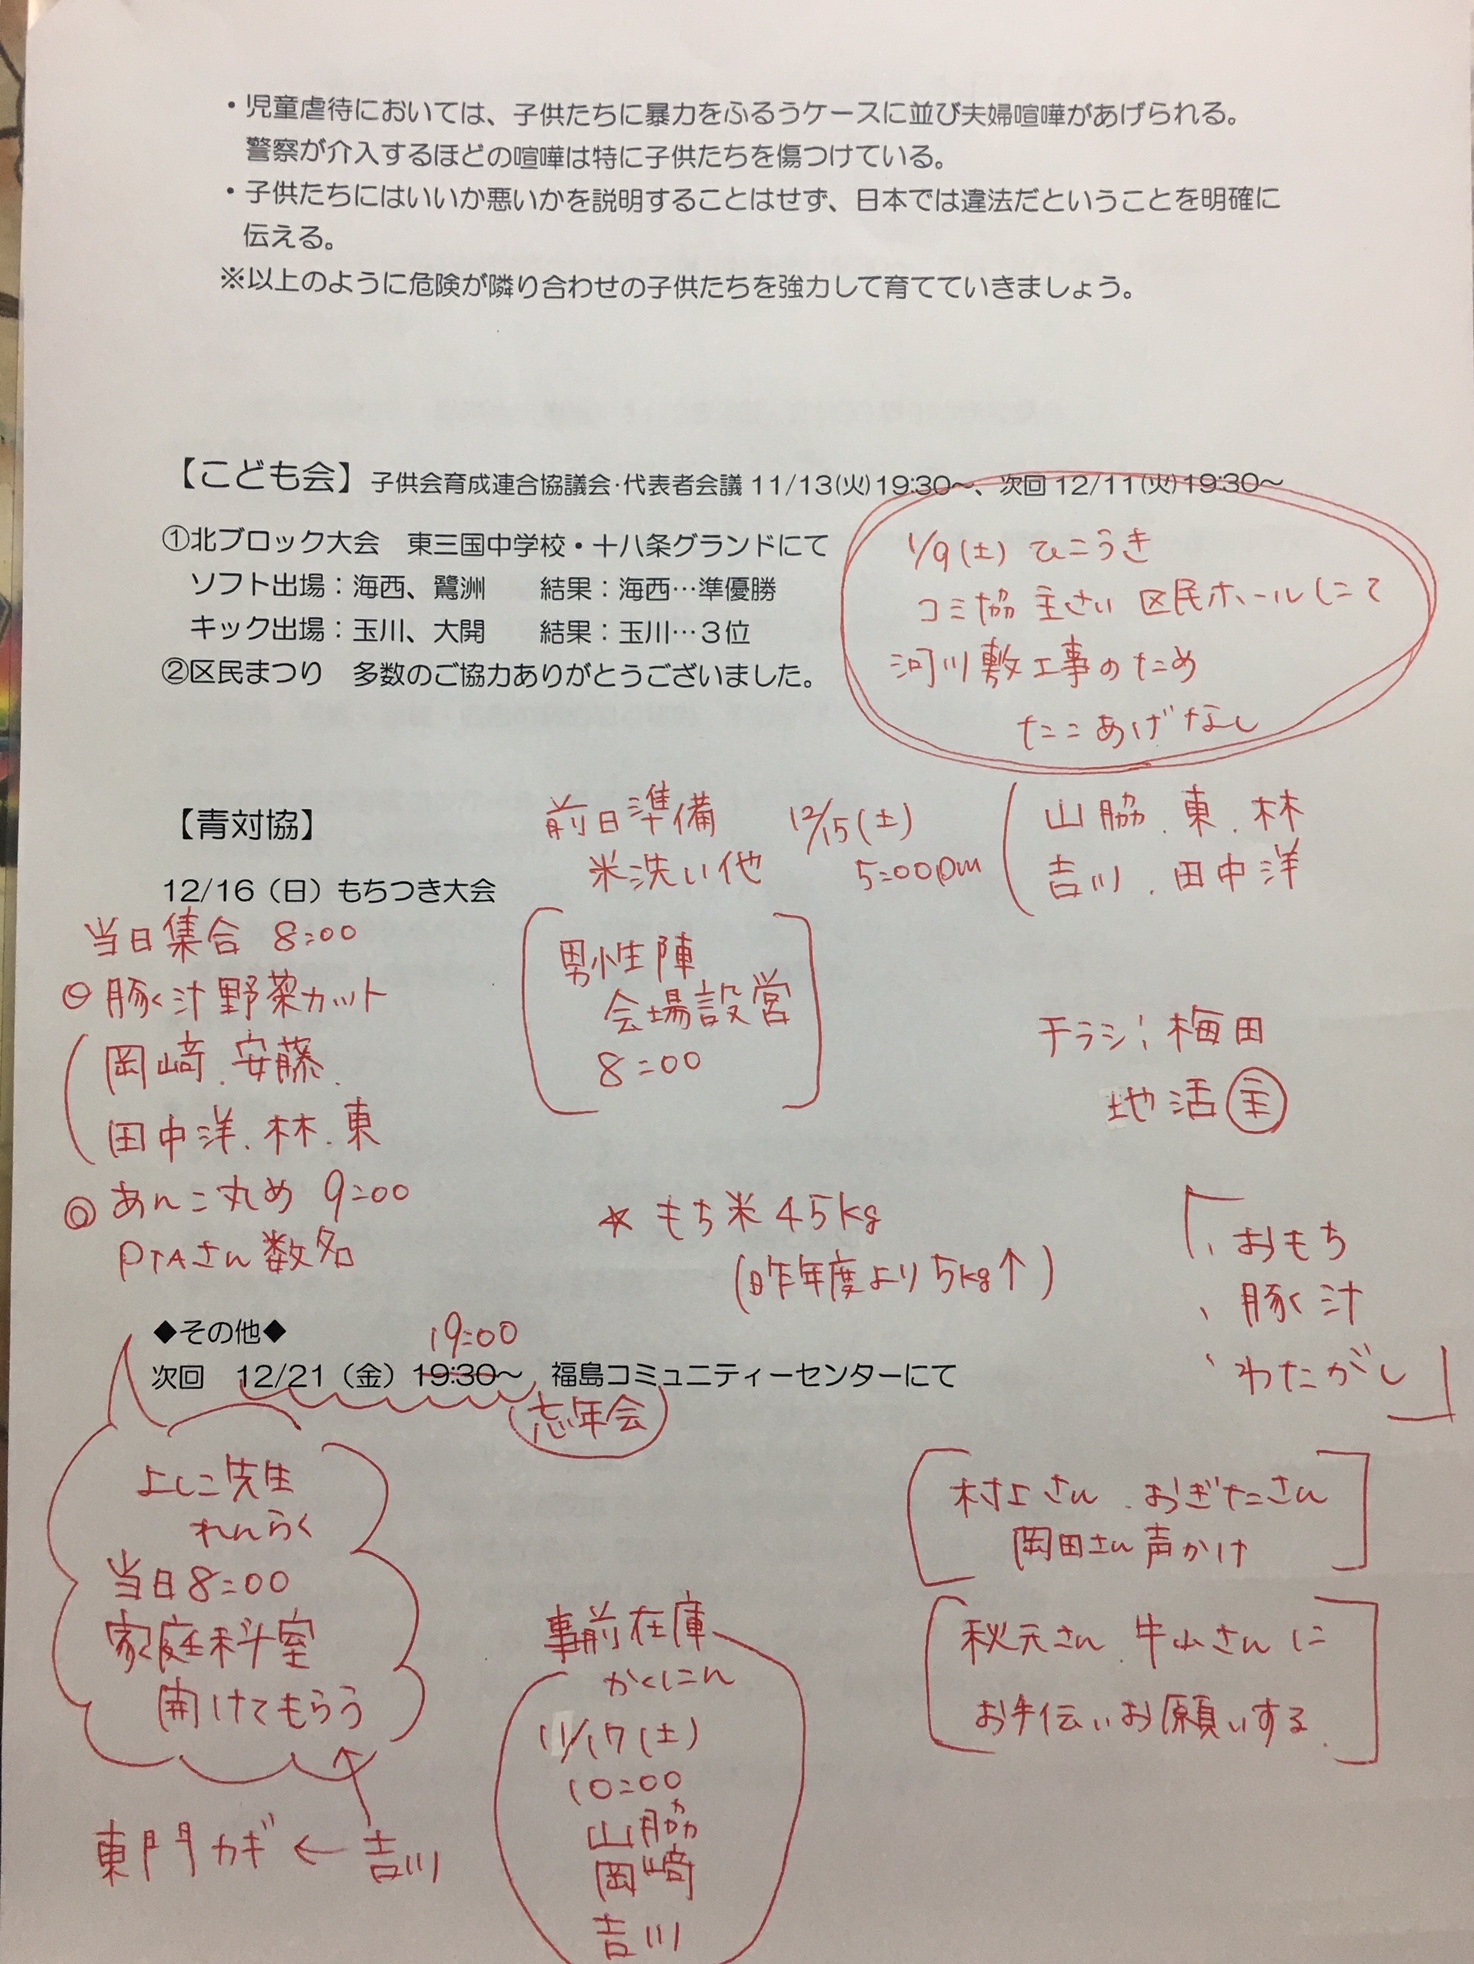 ・児童虐待においては、子供たちに暴力をふるうケースに並び夫婦喧嘩があげられる。
警察が介入するほどの喧嘩は特に子供たちを傷つけている。
・子供たちにはいいか悪いかを説明することはせず、日本では違法だということを明確に
伝える。
※以上のように危険が隣り合わせの子供たちを強力して育てていきましょう。
【こども会】子供会育成連合協議会・代表者会議 11/13(火)19:30〜、次回 12/11(火)19:30〜
①北ブロック大会　東三国中学校・十八条グランドにて
ソフト出場：海西、鷺洲　　結果：海西…準優勝
キック出場：玉川、大開　　結果：玉川…３位
②区民まつり　多数のご協力ありがとうございました。
1/9(土) ひこうき
コミ協 主さい 区民ホールにて
河川敷工事のため
たこあげなし
【青対協】
12/16（日）もちつき大会
前日準備　12/15(土)
米洗い他　5:00pm
山脇、東、林
吉川、田中洋
当日集合 8:00
◎豚汁野菜カット
岡崎、安藤、
田中洋、林、東
◎あんこ丸め 9:00
PTAさん数名
男性陣
会場設営
8:00
チラシ：梅田
地活 主
☆もち米45kg
(昨年度より5kg↑)
「、おもち
、豚汁
、わたがし」
◆その他◆
19:00
次回　12/21（金）19:30〜　福島コミュニティーセンターにて
忘年会
よしこ先生
れんらく
当日8:00
家庭科室
開けてもらう
東門カギ←吉川
事前在庫
かくにん
11/17(土)
10:00
山脇
岡崎
吉川
村上さん、おぎたさん
岡田さん声かけ
秋元さん 牛山さんに
お手伝いお願いする、